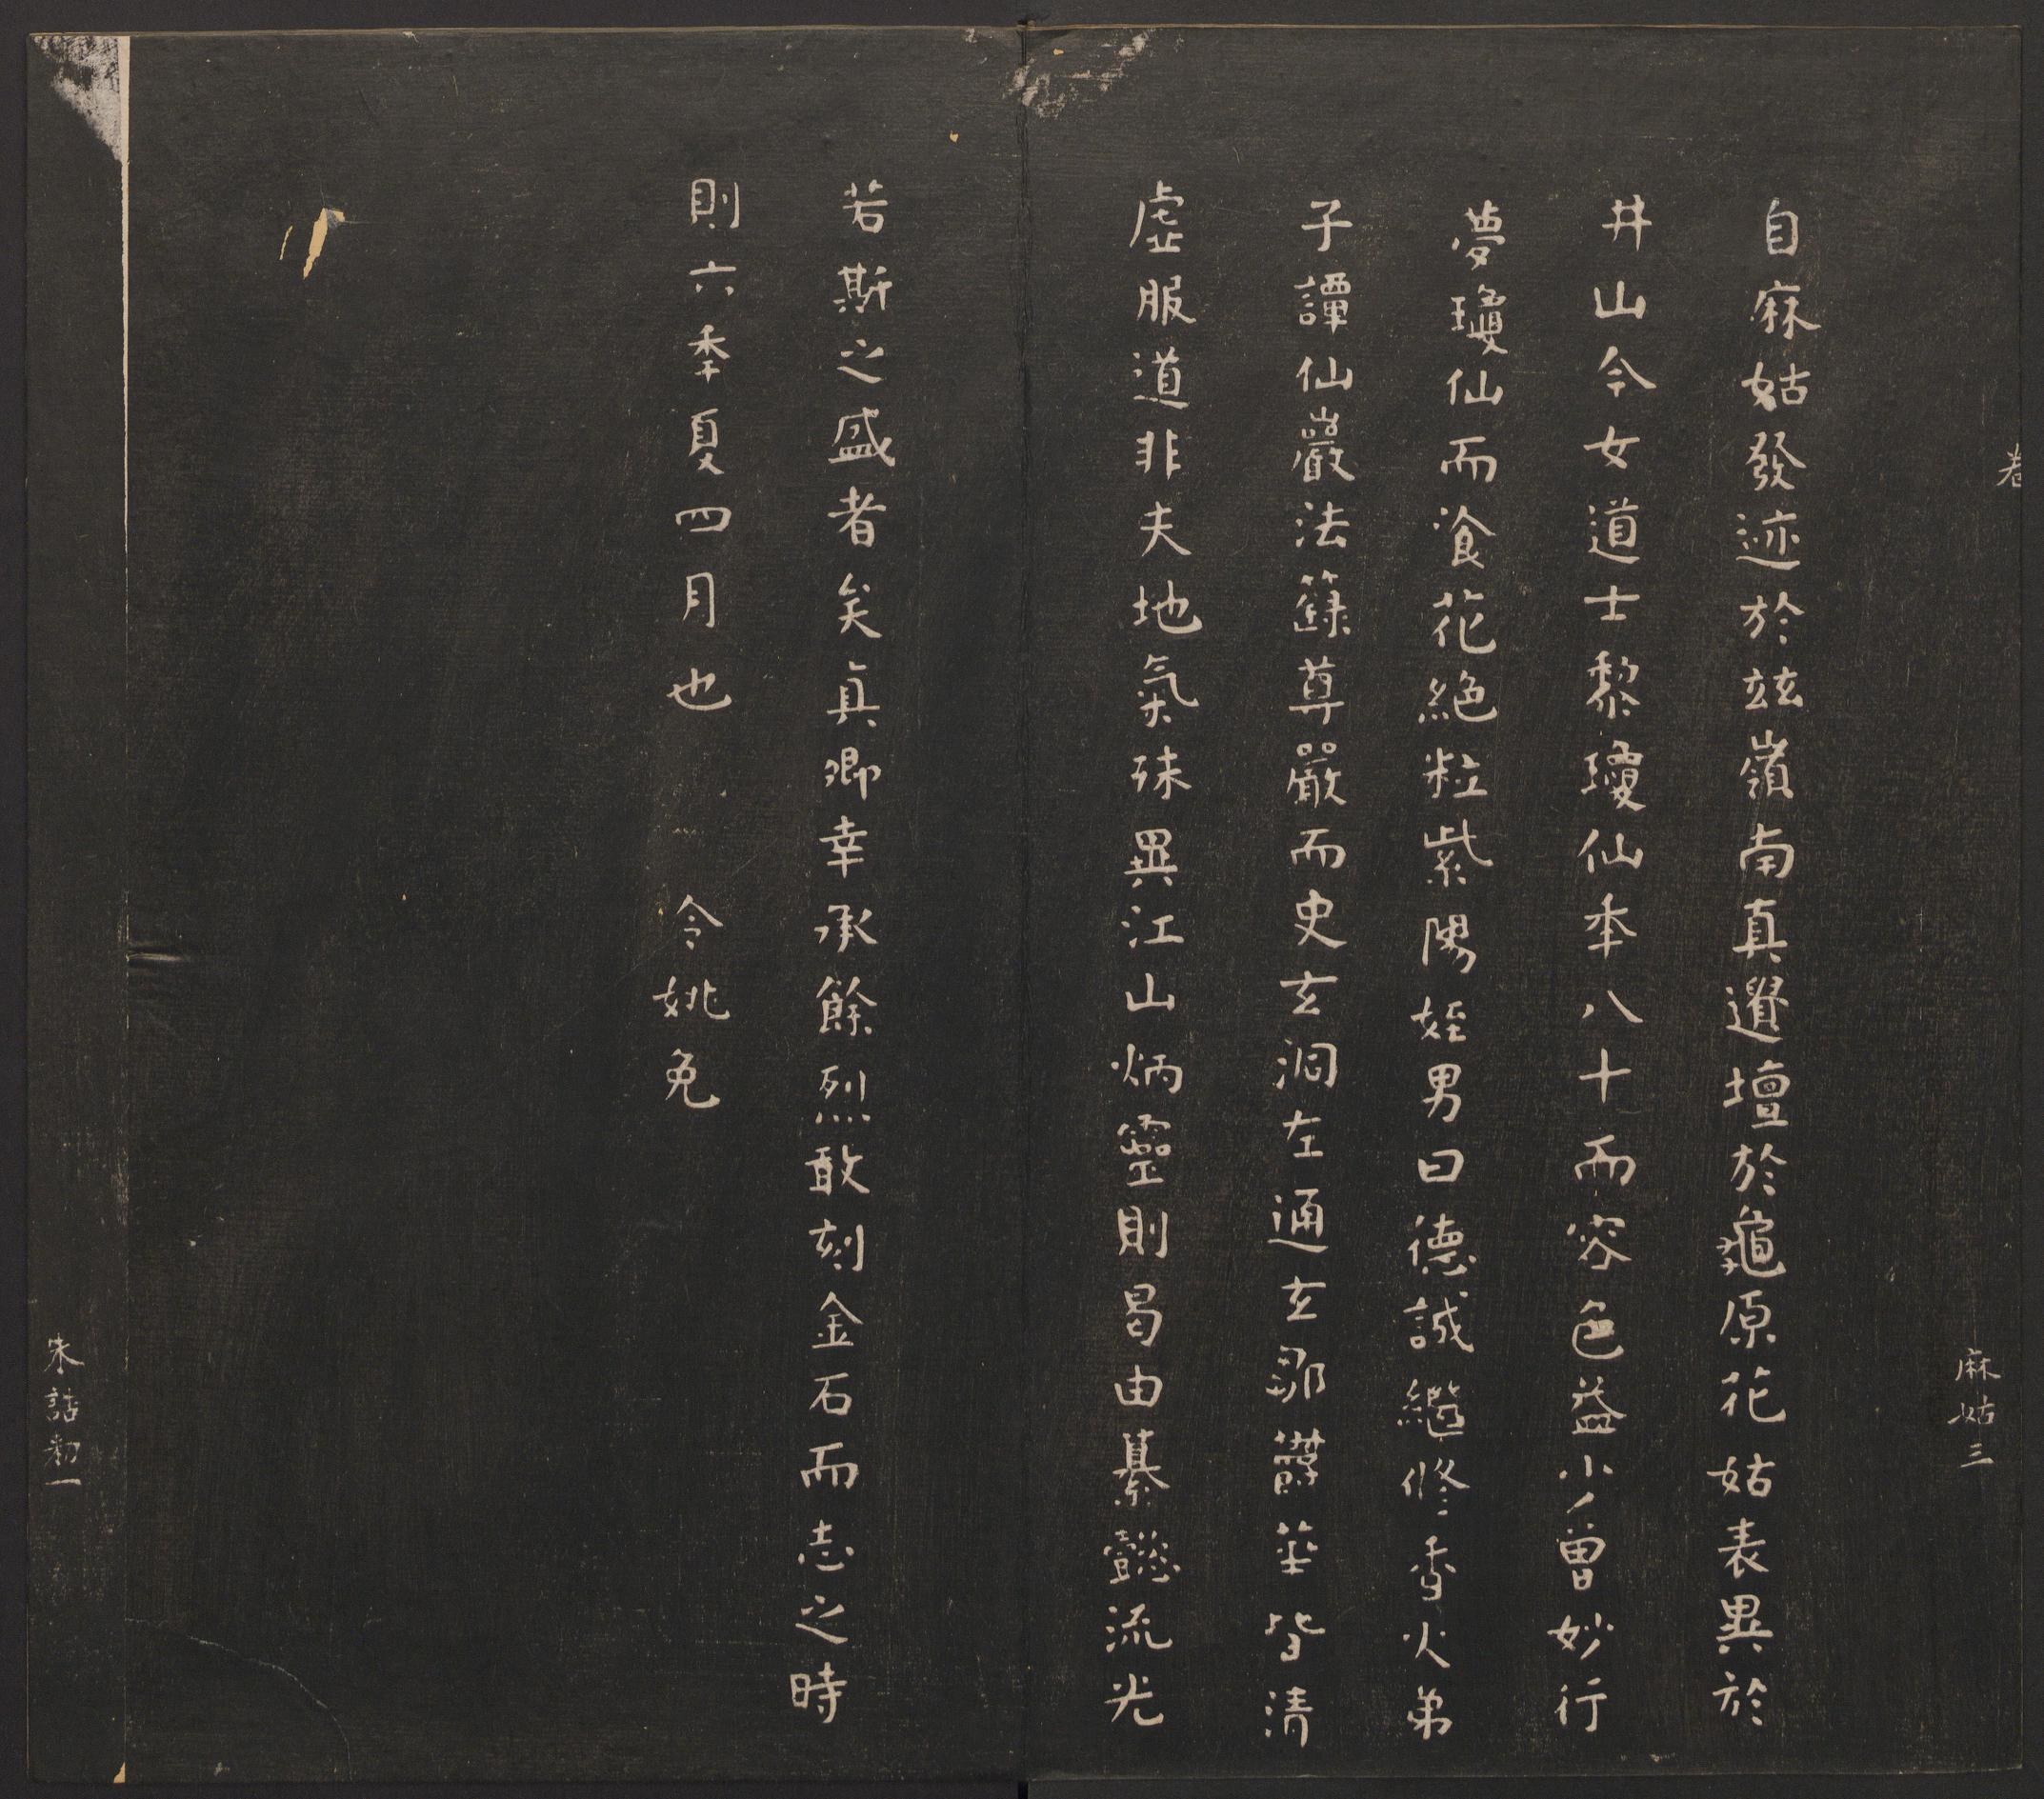 卷
麻姑三
自麻姑發迹於茲嶺南真遺壇於龜原花姑表異於
井山今女道士黎瓊仙年八十而容色益少曾妙行
夢瓊仙而飡花絕粒紫陽姪男曰德誠繼修香火弟
子譚仙巖法籙尊嚴而史玄洞左通玄鄒鬱華皆清
虛服道非夫地氣殊異江山炳靈則曷由纂懿流光
若斯之盛者矣真卿幸承餘烈敢刻金石而志之時
則六年夏四月也 令姚免
朱詰刱一